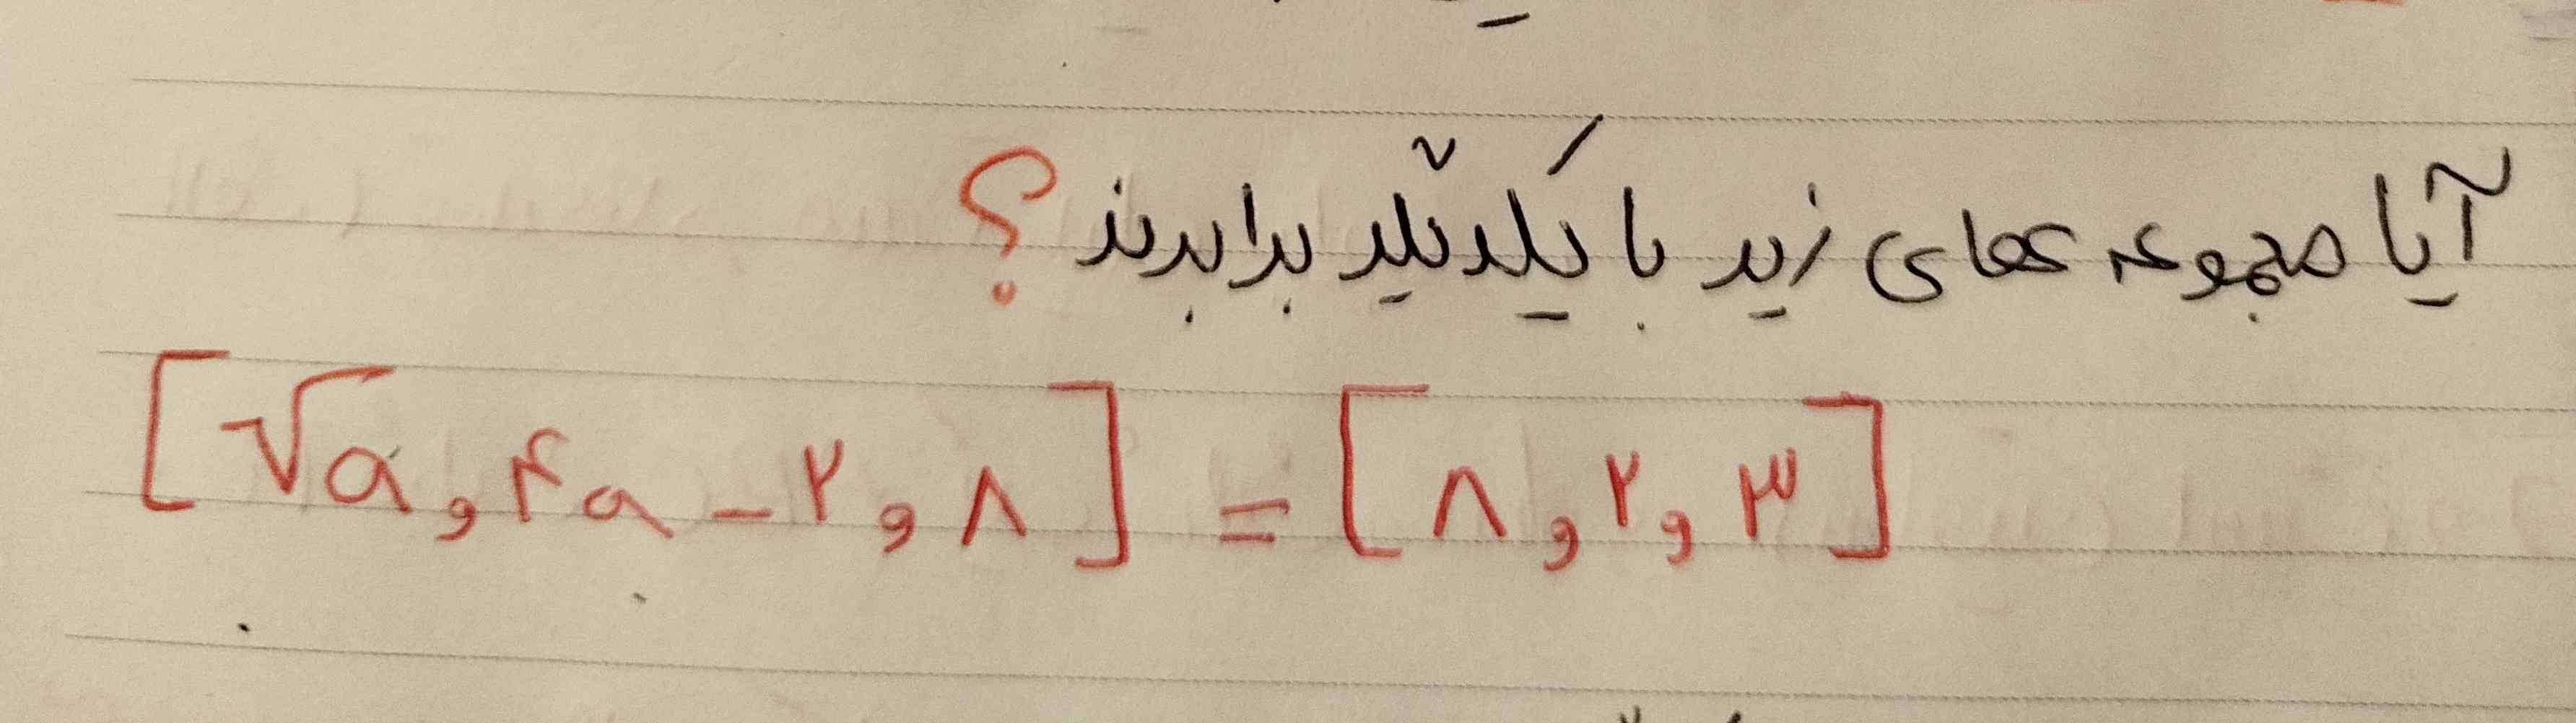 آیا مجموعه های زیر با یکدیگر برابرند ؟
[√a , ۴a - ۲ , ۸] = [۸ , ۲ , ۳]